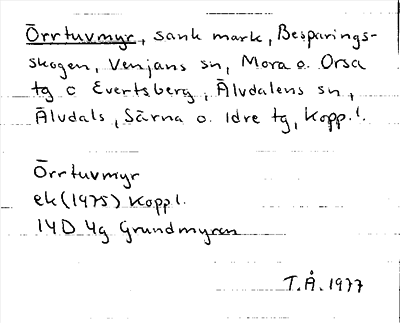 Örrtuvmyr, sank mark, Besparings-
skogen, Venjans sn, Mora o. Orsa
tg o Evertsberg, Älvdalens sn,
Älvdals, Särna o. Idre tg, Kopp.l.
Örrtuvmyr
ek (1975) Koppl.
14D 4g Grundmyren
T.Å. 1977